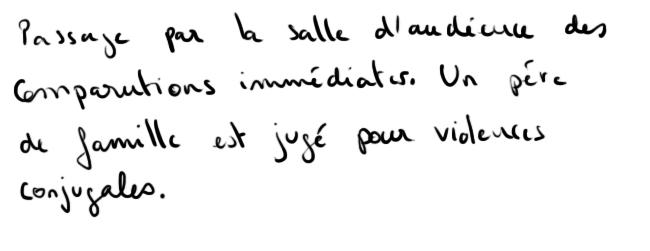 Passage par la salle d'audience des
Comparutions immédiates. Un père
de famille est jugé pour violences
conjugales.